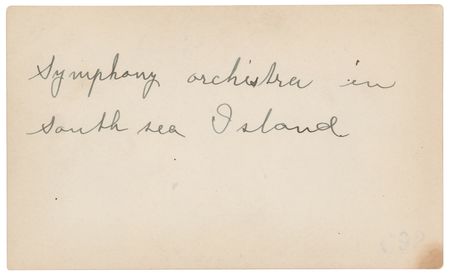 Symphony orchistra in
South sea Island